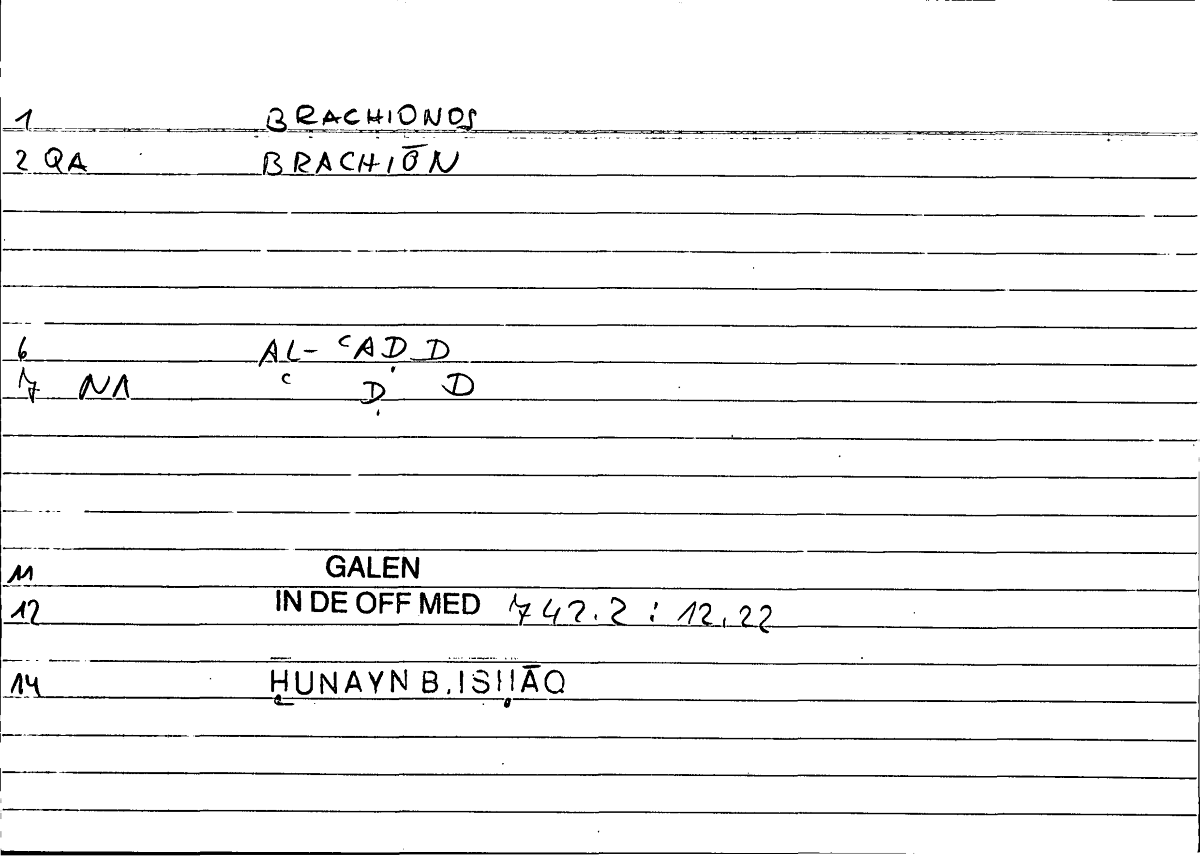 1 BRACHIONOS
2 QA BRACHIŌN
6 AL- ʿAḌD
7 NA ʿ Ḍ D
11 GALEN
12 IN DE OFF MED 742.2 : 12,22
14 ḤUNAYN B. ISḤĀQ